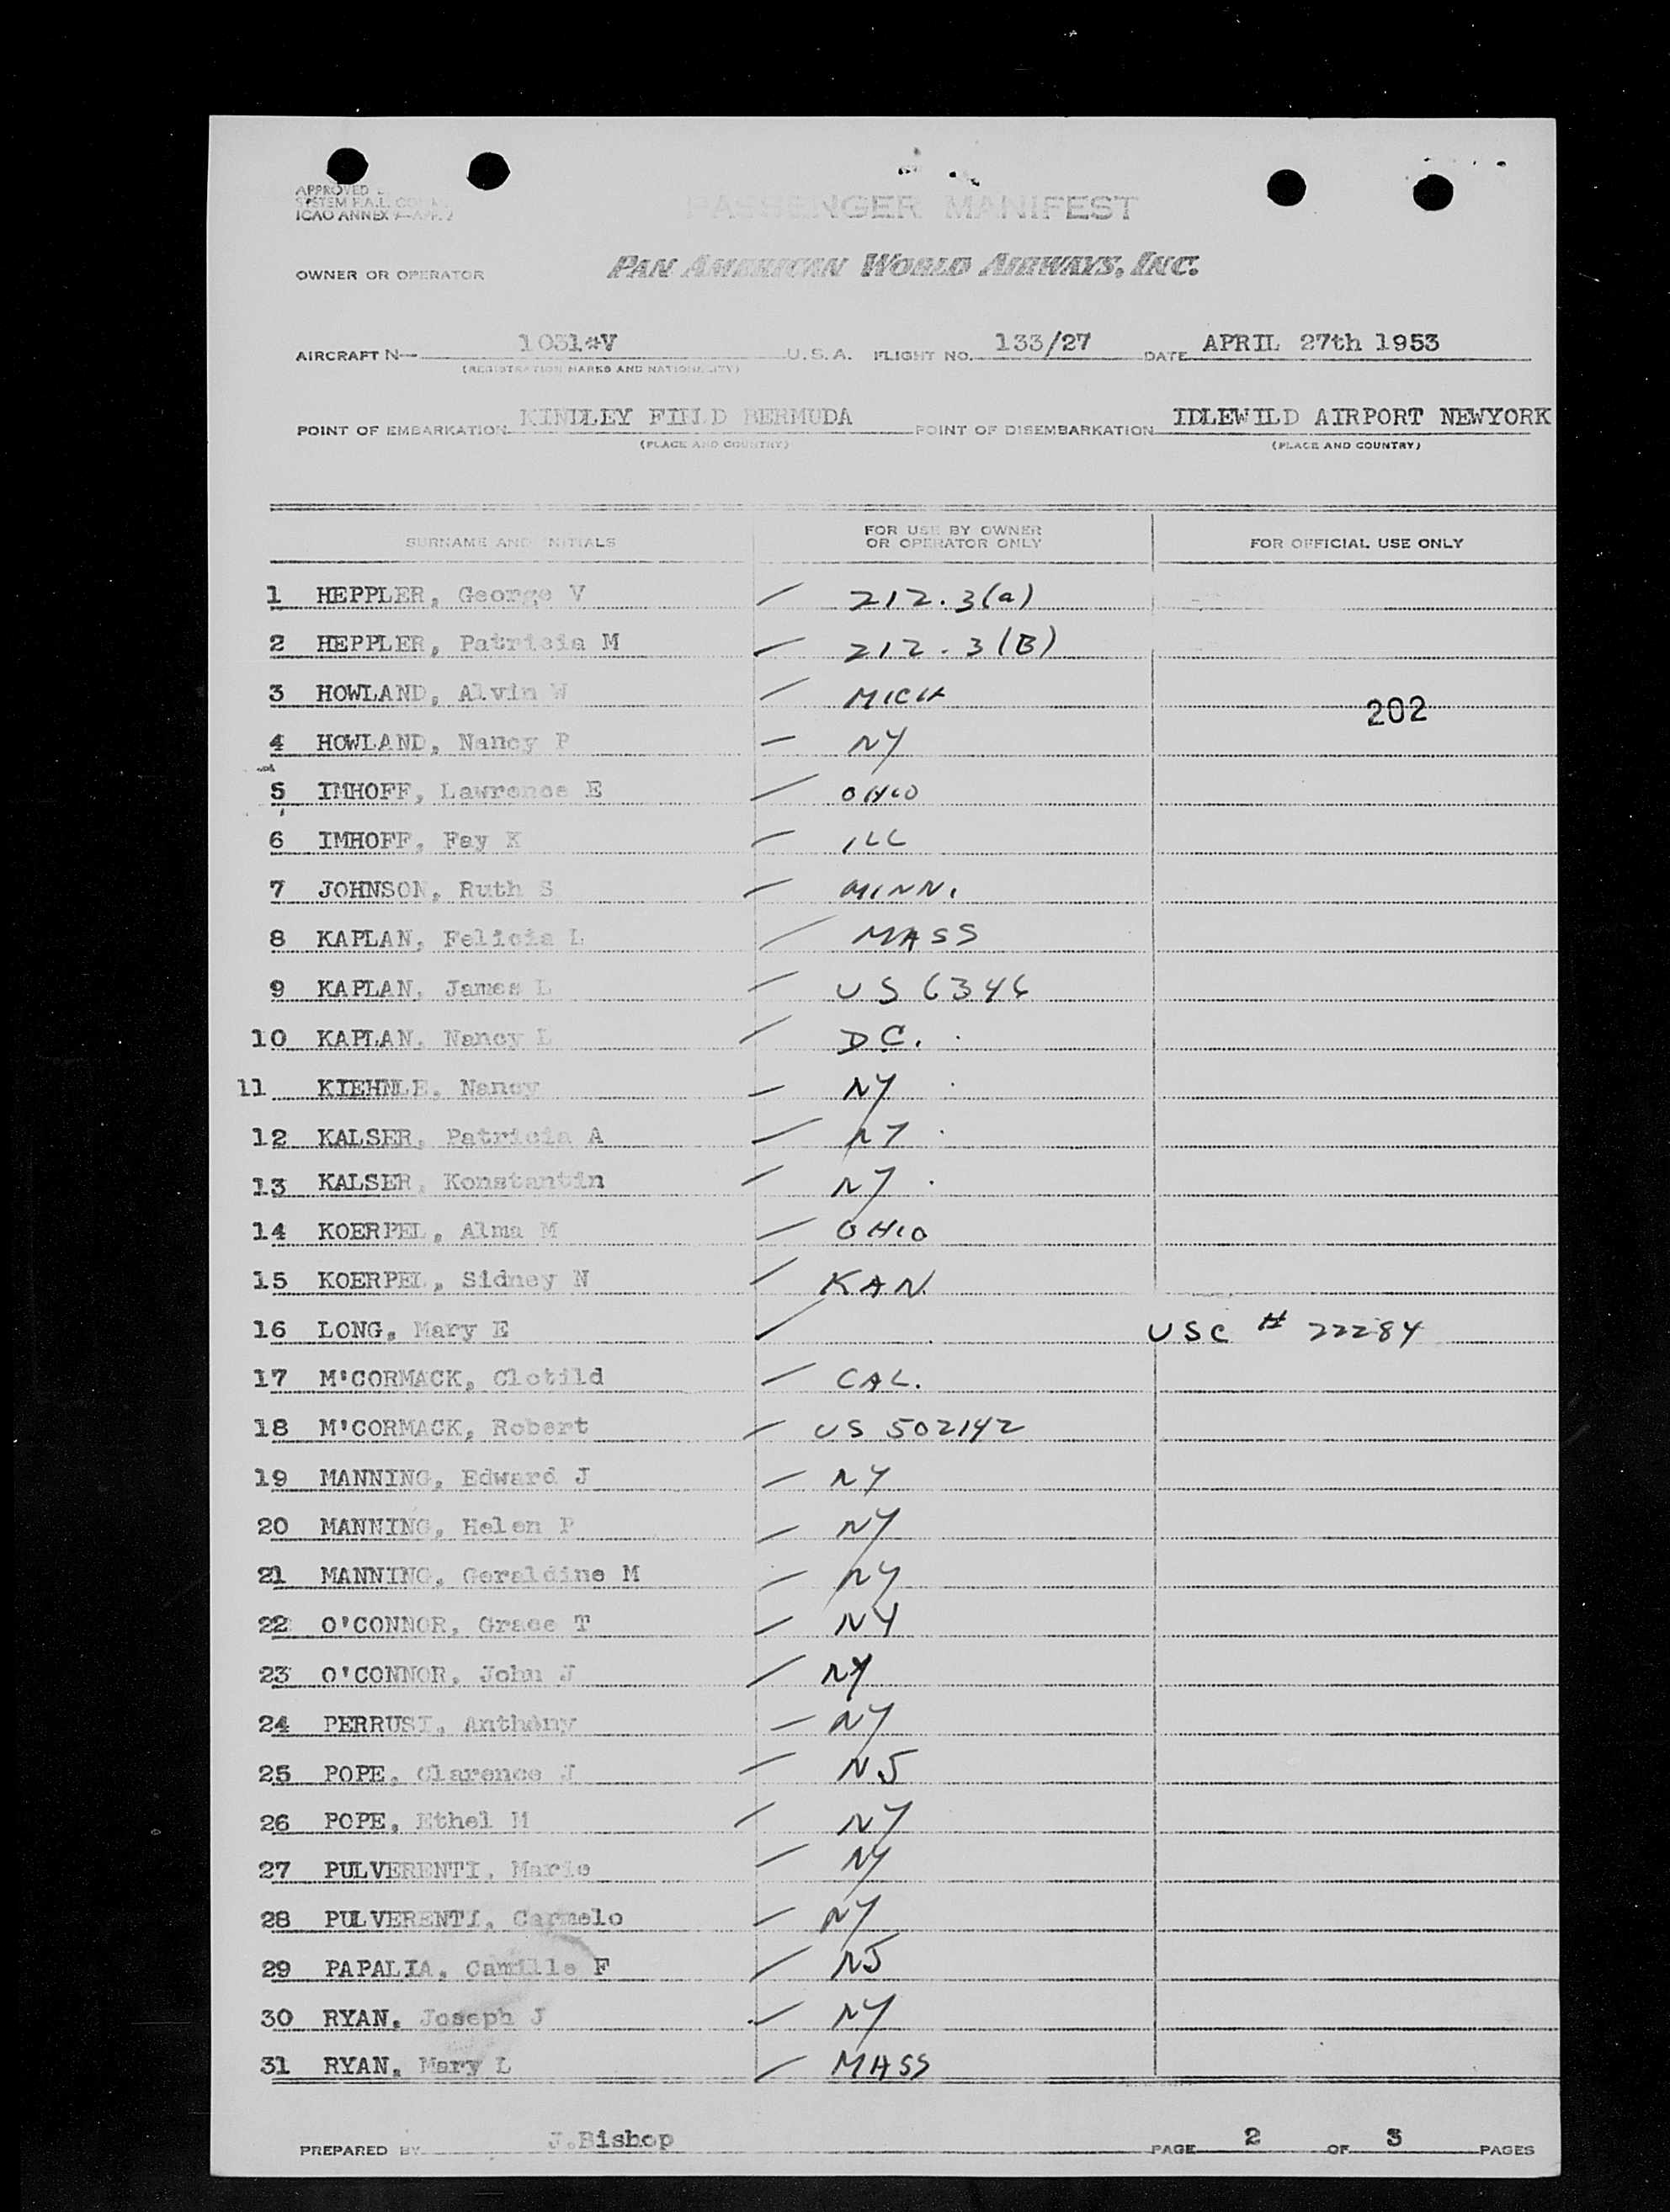 APPROVED
SYSTEM F.A.L.
ICAO ANNEX 9
PASSENGER MANIFEST
OWNER OR OPERATOR PAN AMERICAN WORLD AIRWAYS, INC.
AIRCRAFT N— 1031*V U.S.A. FLIGHT NO. 133/27 DATE APRIL 27th 1953
(REGISTRATION MARKS AND NATIONALITY)
POINT OF EMBARKATION KINDLEY FIELD BERMUDA POINT OF DISEMBARKATION IDLEWILD AIRPORT NEWYORK
(PLACE AND COUNTRY) (PLACE AND COUNTRY)
SURNAME AND INITIALS FOR USE BY OWNER OR OPERATOR ONLY FOR OFFICIAL USE ONLY
1 HEPPLER, George V 212.3(a)
2 HEPPLER, Patricia M 212.3(B)
3 HOWLAND, Alvin W MICH
202
4 HOWLAND, Nancy P NY
5 IMHOFF, Lawrence E OHIO
6 IMHOFF, Fay K ILL
7 JOHNSON, Ruth S MINN.
8 KAPLAN, Felicia L MASS
9 KAPLAN, James L US 6346
10 KAPLAN, Nancy L D.C.
11 KIEHNLE, Nancy NY
12 KALSER, Patricia A NY
13 KALSER, Konstantin NY
14 KOERPEL, Alma M OHIO
15 KOERPEL, Sidney N KAN.
16 LONG, Mary E USC # 22284
17 M'CORMACK, Clotild CAL.
18 M'CORMACK, Robert US 502142
19 MANNING, Edward J NY
20 MANNING, Helen P NY
21 MANNING, Geraldine M NY
22 O'CONNOR, Grace T NY
23 O'CONNOR, John J NY
24 PERRUSI, Anthony NY
25 POPE, Clarence J NJ
26 POPE, Ethel M NY
27 PULVERENTI, Marie NY
28 PULVERENTI, Carmelo NY
29 PAPALIA, Camille F NJ
30 RYAN, Joseph J NY
31 RYAN, Mary L MASS
PREPARED BY J.Bishop PAGE 2 OF 3 PAGES